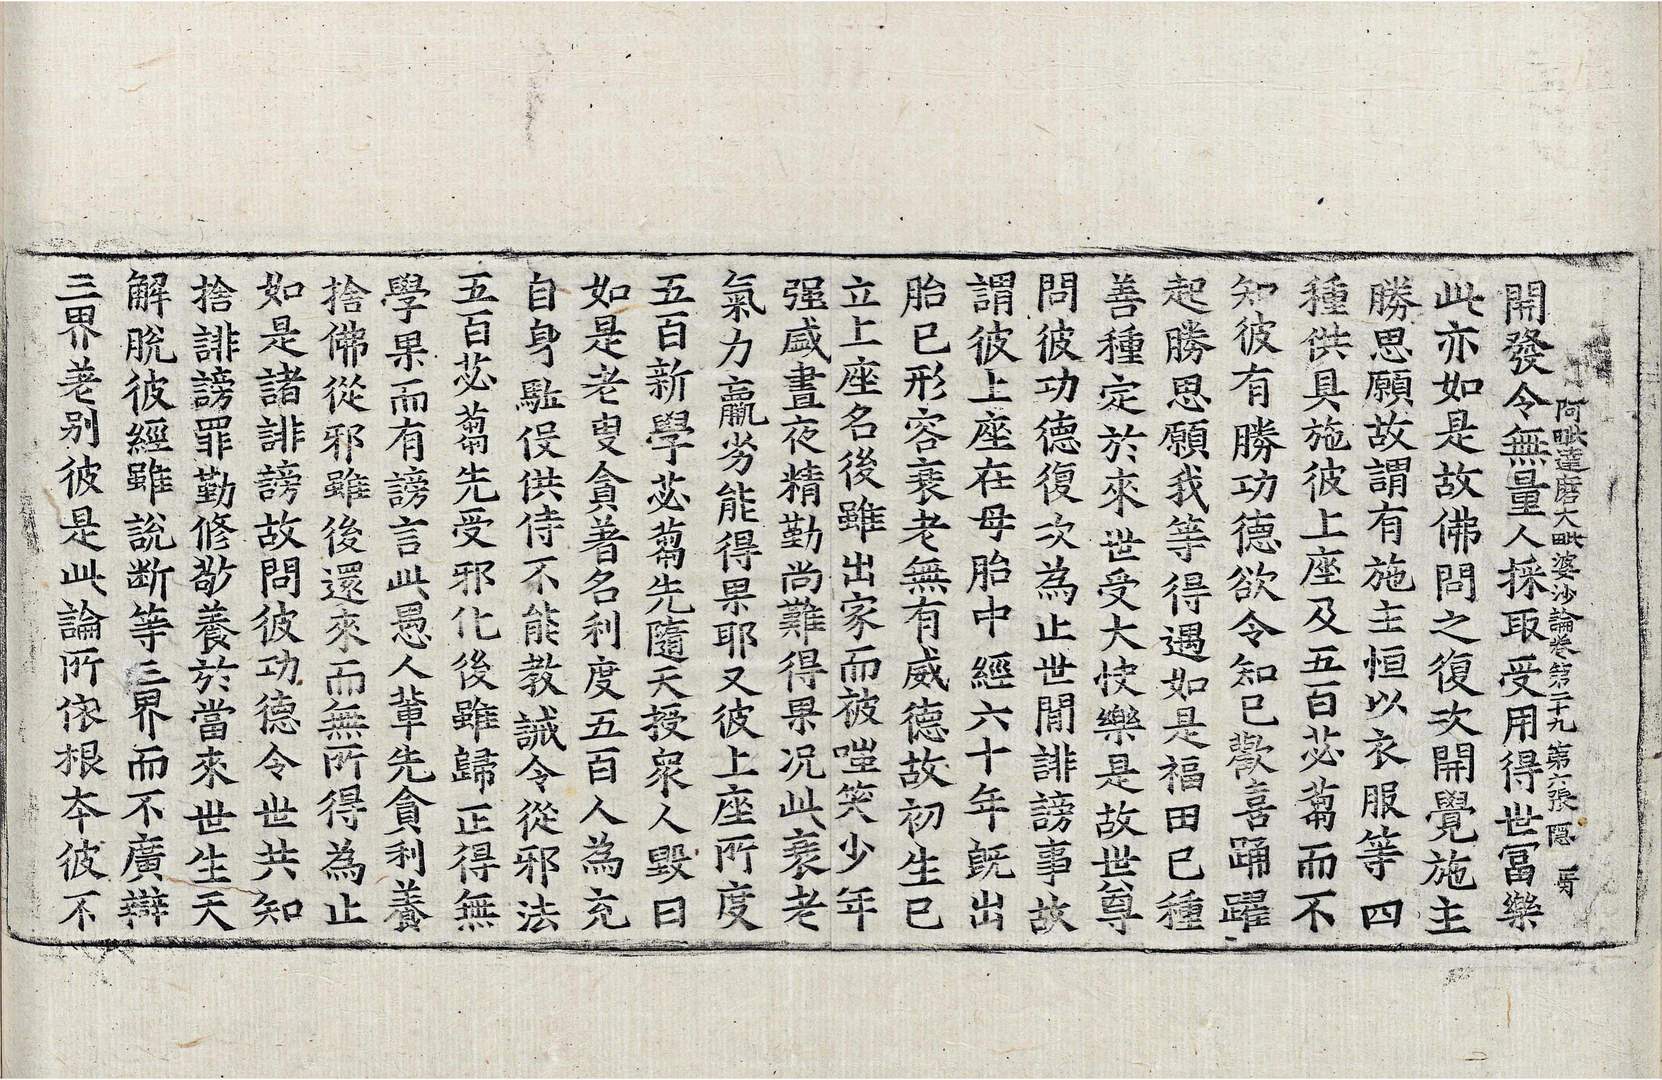 阿毗達磨大毗婆沙論卷第二十九 第六張 隱
開發令無量人採取受用得世冨樂
此亦如是故佛問之復次開覺施主
勝思願故謂有施主恒以衣服等四
種供具施彼上座及五百苾蒭而不
知彼有勝功德欲令知已歡喜踊躍
起勝思願我等得遇如是福田已種
善種定於來世受大快樂是故世尊
問彼功德復次為止世閒誹謗事故
謂彼上座在母胎中經六十年旣出
胎已形容衰老無有威德故初生已
立上座名後雖出家而被嗤笑少年
强盛晝夜精勤尚難得果况此衰老
氣力羸劣能得果耶又彼上座所度
五百新學苾蒭先隨天授眾人毀曰
如是老叟貪著名利度五百人為充
自身駈役供侍不能教誡令從邪法
五百苾蒭先受邪化後雖歸正得無
學果而有謗言此愚人輩先貪利養
捨佛從邪雖後還來而無所得為止
如是諸誹謗故問彼功德令世共知
捨誹謗罪勤修敬養於當來世生天
解脫彼經雖說断等三界而不廣辯
三界差别彼是此論所依根本彼不